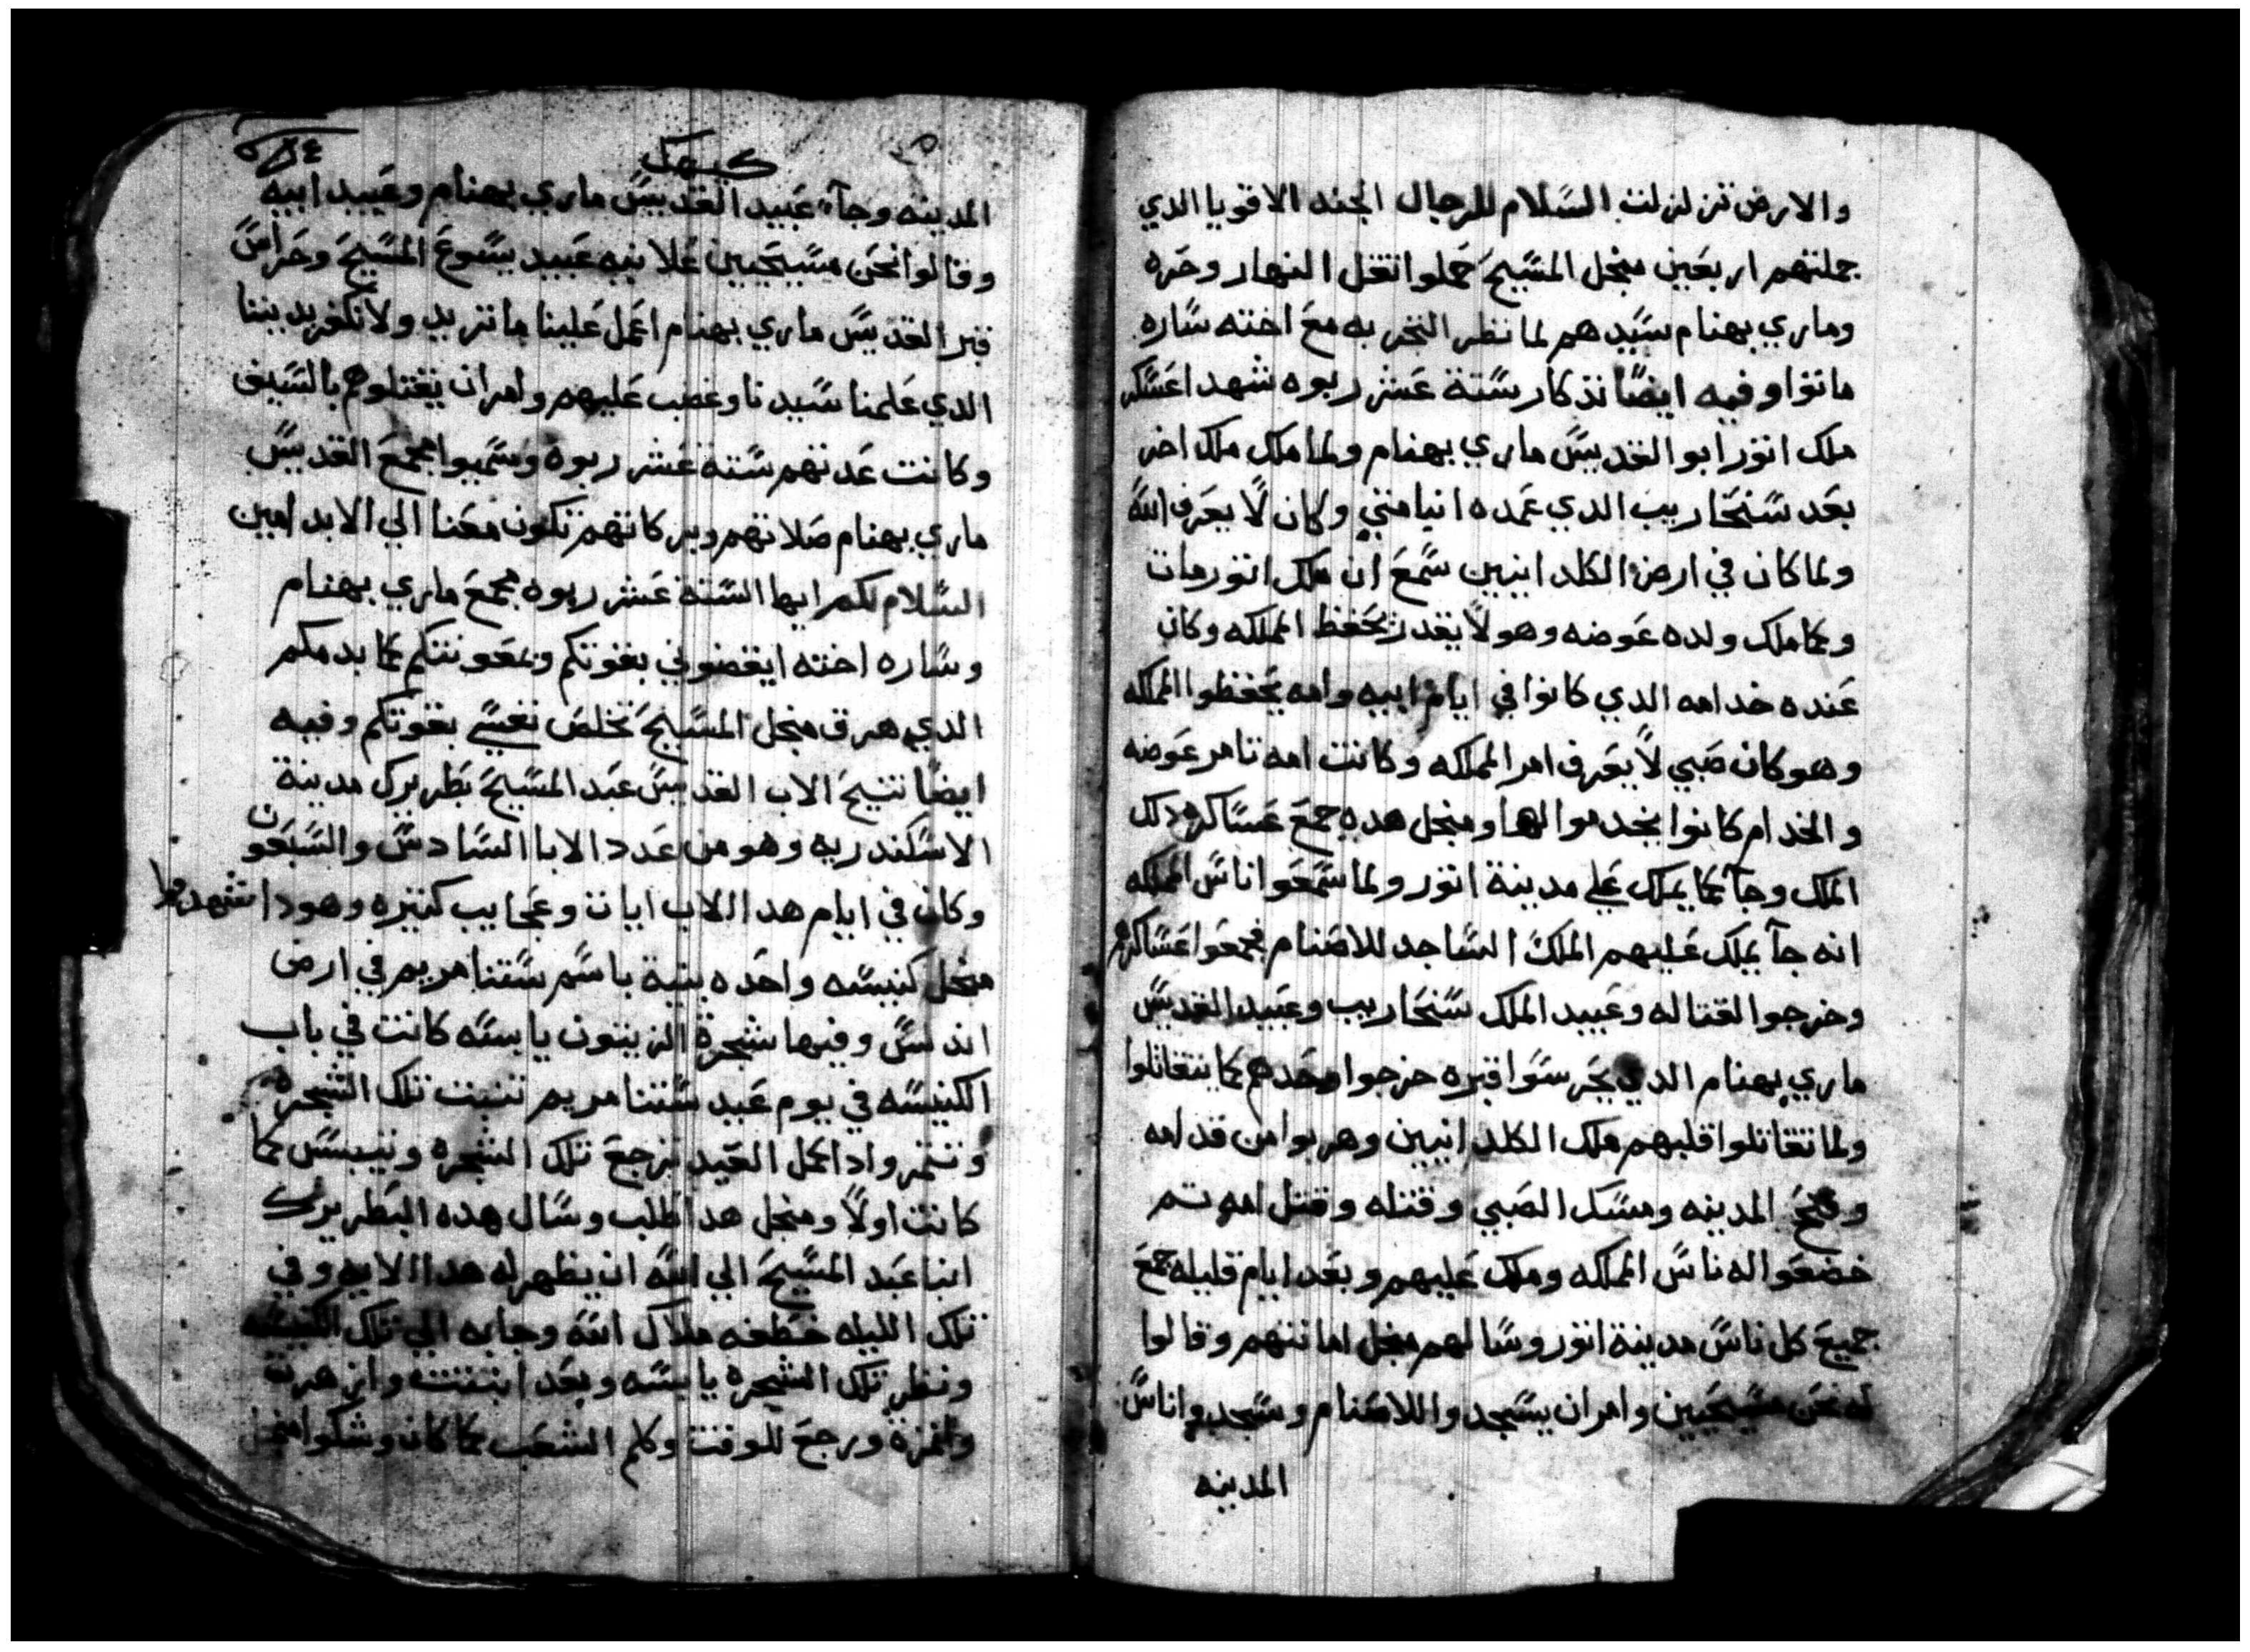 والارض تزلزلت السلام للرجال الجنه الاقويا الدي
جملتهم اربعين منجل المسيح حملوا تقل النهار وحره
وماري بهنام سيدهم لما نظر التخريه مع اخته ساره
ماتوا وفيه ايضا تذكار ستة عشر ربوه شهدا عسكر
ملك اتور ابو القديس ماري بهنام ولما ملك ملك اخر
بعد سنحاريب الدي عمده انبا متي وكان لا يعرف الله
ولما كان في ارض الكلدانيين سمع ان ملك اتور مات
وكما ملك ولده عوضه وهو لا يقدر يحفظ المملكه وكان
عنده خدامه الدي كانوا في ايام ابيه وامه يحفظوا المملكه
وهو كان صبي لا يعرف امر المملكه وكانت امه تامر عوضه
والخدام كانوا يخدموا لها ومنجل هده جمع عساكره دلك
الملك وجآ كما يملك علي مدينة اتور ولما سمعوا ناس المملكه
انه جآ يملك عليهم الملك الساجد للاصنام فجمعوا عساكرهم
وخرجوا لقتاله وعبيد الملك سنحاريب وعبيد القديس
ماري بهنام الدي يحرسوا قبره خرجوا وحدهم كما يتقاتلوا
ولما تقاتلوا قلبهم ملك الكلدانيين وهربوا من قدامه
وفتح المدينه ومسك الصبي وقتله وقتل امه تم
خضعوا له ناس المملكه وملك عليهم وبعد ايام قليله جمع
جميع كل ناس مدينة اتور وسالهم منجل امانتهم وقالوا
له نحن مسيحيين وامر ان يسجدوا للاصنام وسجدوا ناس
المدينه
كيهك
المدينه وجآء عبيد القديس ماري بهنام وعبيد ابيه
وقالوا نحن مسيحيين علانيه عبيد يسوع المسيح وحراس
قبر القديس ماري بهنام اعمل علينا ما تريد ولا نكفر بديننا
الدي علمنا سيدنا وغضب عليهم وامر ان يقتلوهم بالسيف
وكانت عدتهم ستة عشر ربوه وسميوا مجمع القديس
ماري بهنام صلاتهم وبركاتهم تكون معنا الي الابد امين
السلام لكم ايها الستة عشر ربوه مجمع ماري بهنام
وساره اخته ايقضوني بقوتكم ومعونتكم كما بدمكم
الدي هرق منجل المسيح تخلص نفسي بقوتكم وفيه
ايضا تنيح الاب القديس عبد المسيح بطريرك مدينة
الاسكندريه وهو من عدد الابا السادس والسبعون
وكان في ايام هدا الاب ايات وعجايب كتيره وهودا تشهد
منجل كنيسه واحده بنية باسم ستنا مريم في ارض
اندلس وفيها شجرة الزيتون يابسه كانت في باب
الكنيسه في يوم عيد ستنا مريم تنبت تلك الشجره
وتتمر وادا كمل العيد ترجع تلك الشجره وتيبس كما
كانت اولا ومنجل هدا طلب وسال هده البطريرك
انبا عبد المسيح الي الله ان يظهر له هدا الايه وفي
تلك الليله خطفه ملاك الله وجابه الي تلك الكنيسه
ونظر تلك الشجره يابسه وبعد انبتت وازهرة
واتمرة ورجع للوقت وكلم الشعب كما كان وشكوا منجل